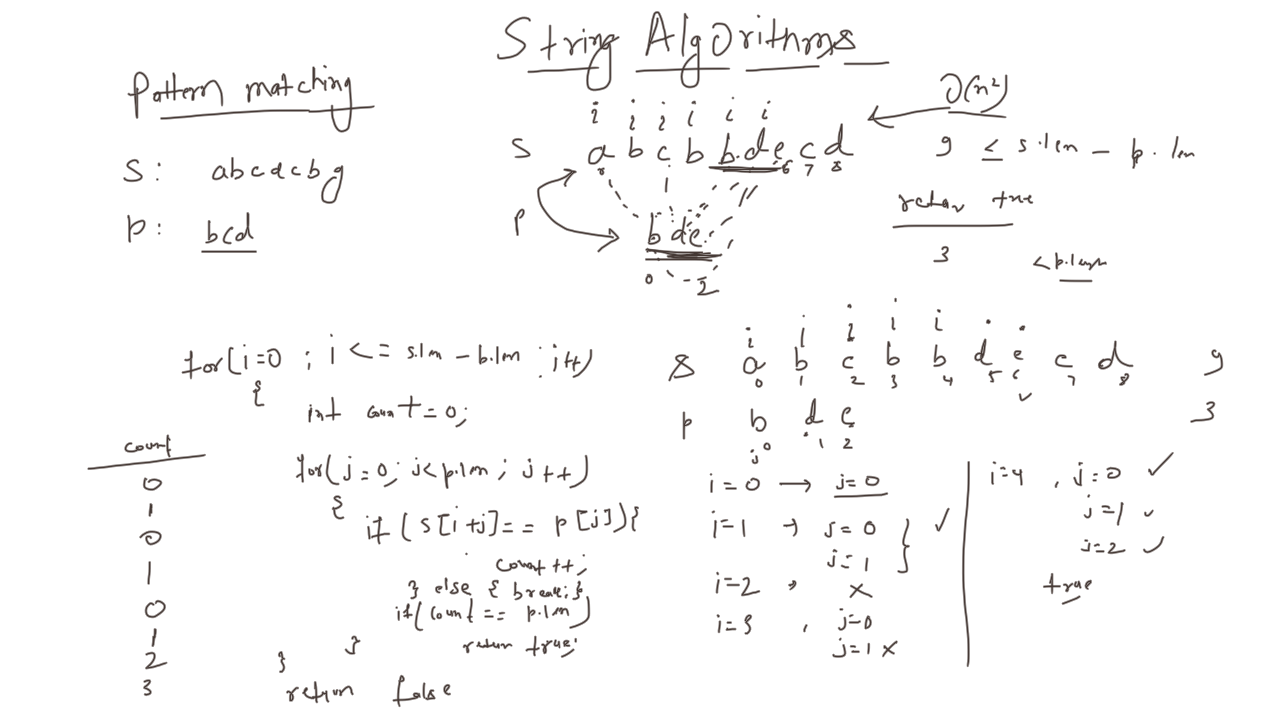 String Algorithms
Pattern matching
O(n²)
i i i i i i
S a b c b b d e c d
0 6 7 8
9 <= s.len - p.len
S: abcdcbg
p: bcd
return true
p bde
0 - 2
3 < p.length
for(i=0 ; i <= s.len - p.len ; i++)
{
int count = 0;
for(j=0; j<p.len; j++)
{
if (s[i+j] == p[j]){
count++;
} else { break; }
if(count == p.len)
return true;
}
}
return false
count
0
1
0
1
0
1
2
3
i i i i i
S a b c b b d e c d 9
0 1 2 3 4 5 6 7 8
p b d e 3
j 0 1 2
i=0 → j=0
i=1 → j=0
j=1
i=2 , x
i=3 , j=0
j=1 x
i=4 , j=0 ✓
j=1 ✓
j=2 ✓
true